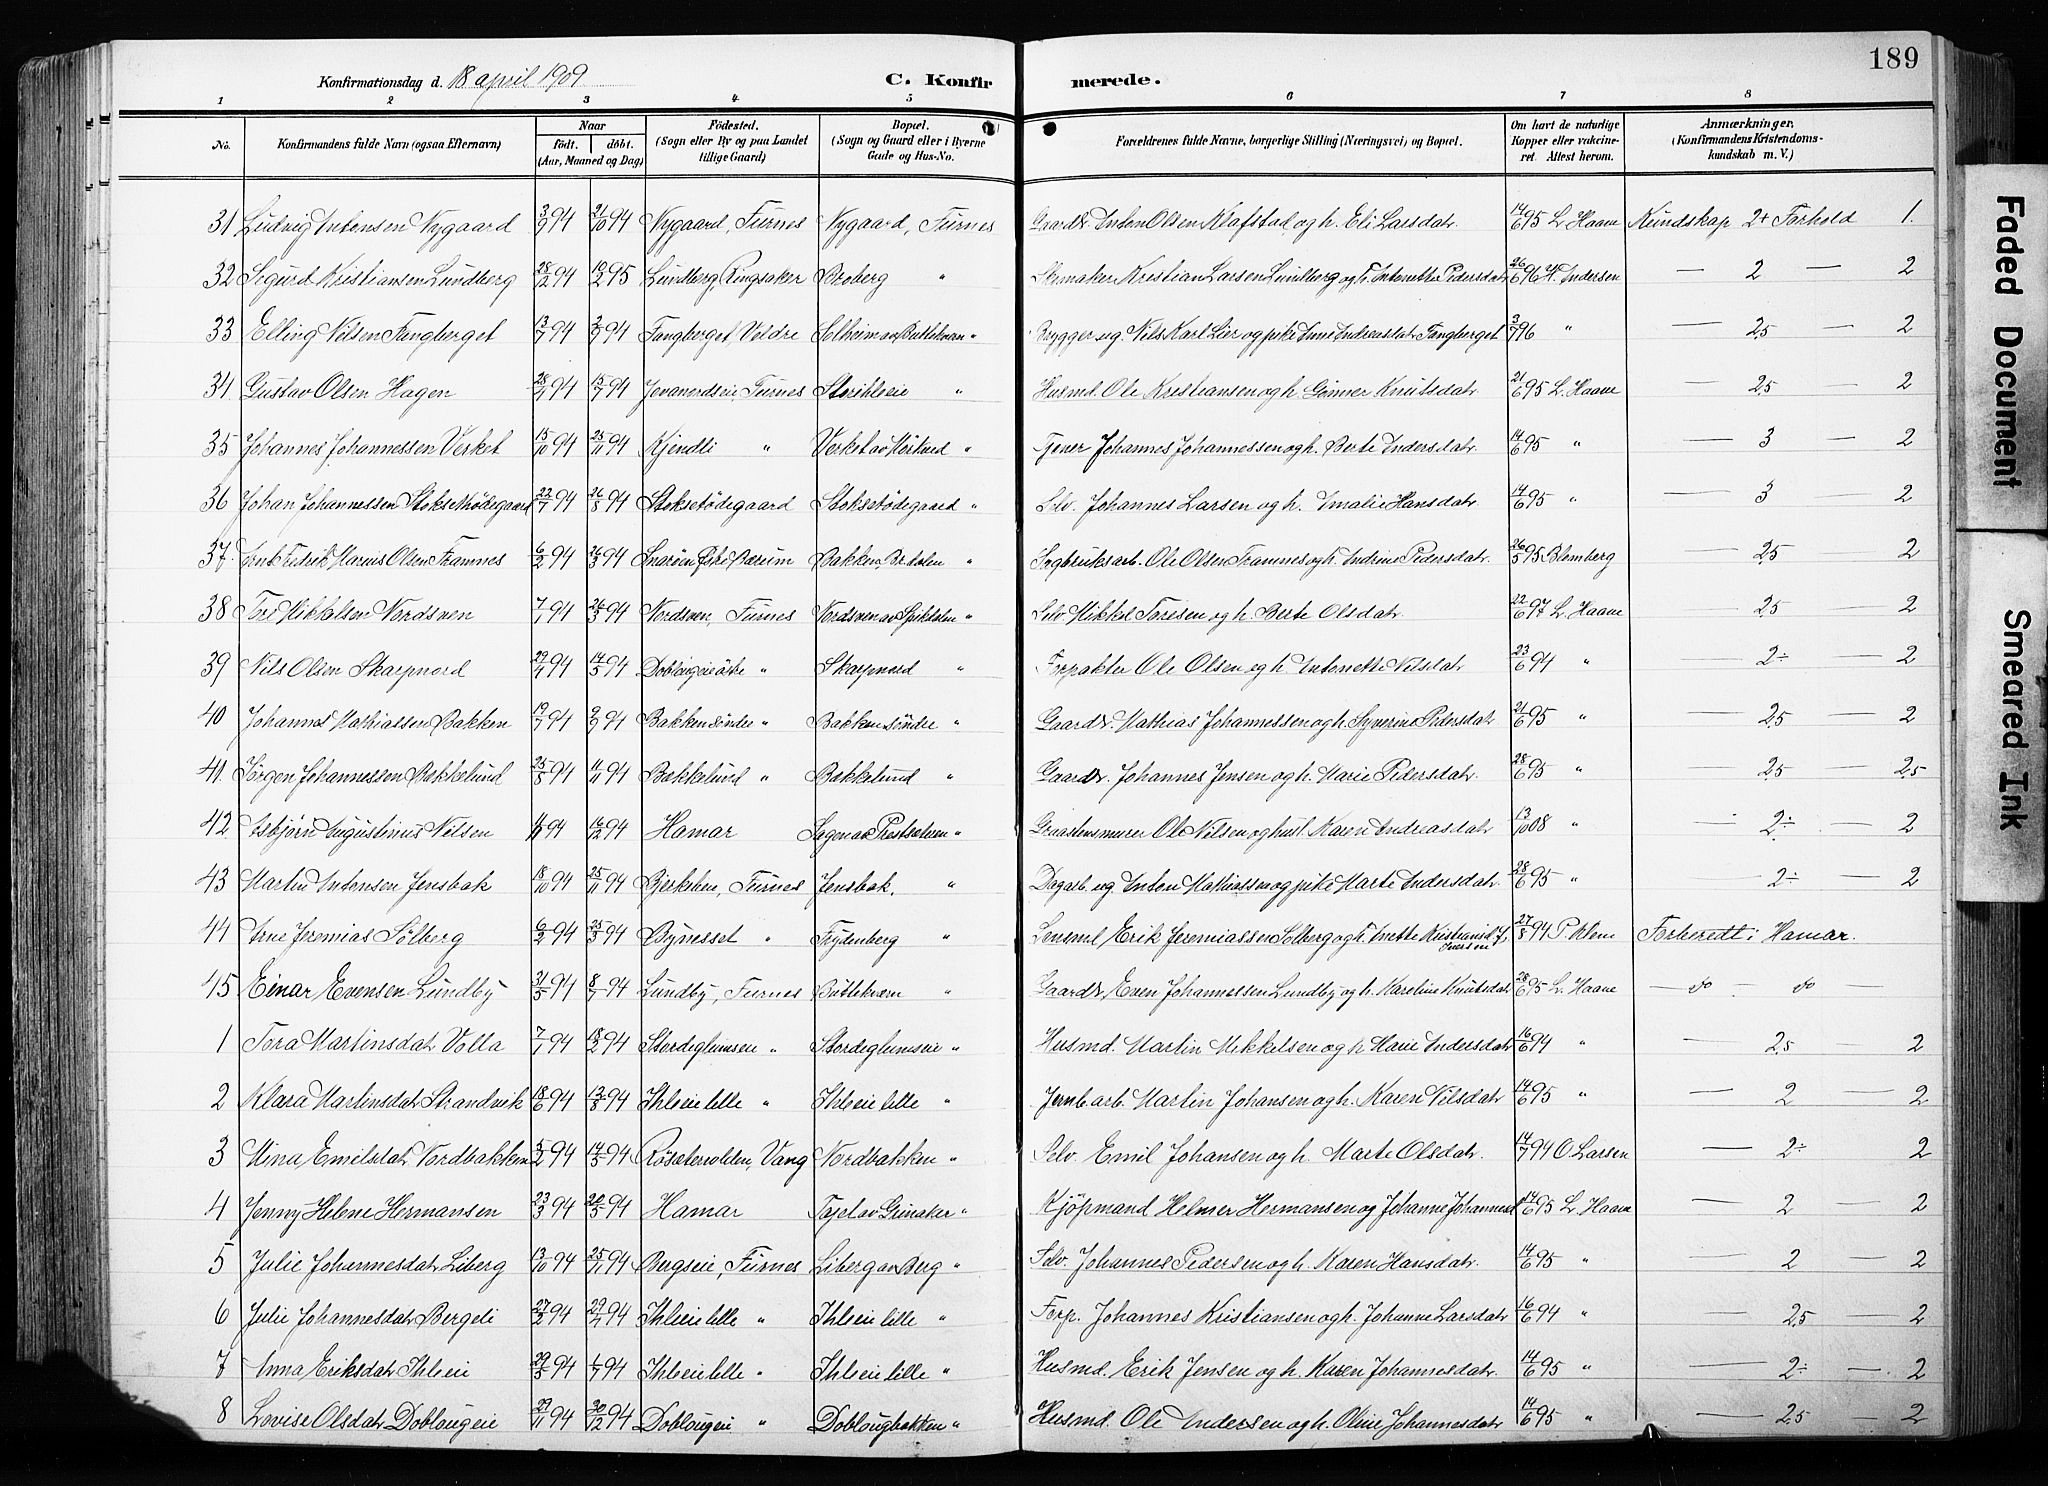 189
Konfirmationsdag d. 18 april 1909
C. Konfirmerede.
1 2 3 4 5 6 7 8
No. Konfirmandens fulde Navn (ogsaa Efternavn) Naar født. døbt. (Aar, Maaned og Dag) Fødested. (Sogn eller By og paa Landet tillige Gaard) Bopæl. (Sogn og Gaard eller i Byerne Gade og Hus-No. Forældrenes fulde Navne, borgerlige Stilling (Næringsvei) og Bopæl. Om havt de naturlige Kopper eller vakcineret. Attest herom. Anmærkninger. (Konfirmandens Kristendomskundskab m. V.)
31 Ludvig Antonsen Nygaard 3/9 94 21/10 94 Nygaard, Furnes Nygaard, Furnes Gaardr. Anton Olsen Klafstad og h. Eli Larsdatr. 14/6 95 L. Haave Kundskap 2+ Forhold 1.
32 Sigurd Kristiansen Lundberg 28/12 94 10/2 95 Lundberg, Ringsaker Broberg " Skomaker Kristian Larsen Lundberg og h. Antonette Pedersdatr 26/6 96 H. Andersen — 2 — 2
33 Elling Nilsen Fangberget 13/7 94 Fangberget Veldre " Brygger ug. Nils Karl Lier og pike Anne Andreasdatr Fangberget 3/7 96 " — 2,5 — 2
34 Gustav Olsen Hagen 15/7 94 Furnes " Husmd. Ole Kristiansen og h. Gunner Knutsdatr 21/6 95 L. Haave — 2,5 — 2
35 Johannes Johannessen Verket 15/10 94 25/11 94 Kjendli " " Gjører Johannes Johannessen og h. Berte Andersdatr. 14/6 95 " — 3 — 2
36 Johan Johannessen Stoksetødegaard 22/7 94 26/8 94 Stoksetødegaard Stoksetødegaard " Selv. Johannes Larsen og h. Amalie Hansdatr. 14/6 95 " — 3 — 2
37. Arnt Fredrik Marius Olsen Framnes 6/2 94 26/3 94 Snarøen Østre Bærum Bakken, " Sagbruksarb. Ole Olsen Framnes og h. Andrine Pedersdatr. 26/5 95 Blomberg — 2,5 2
38 Tore Mikkelsen Nordsven 7/1 94 26/3 94 Nordsven, Furnes Nordsven av " Selv. Mikkel Toresen og h. Berte Olsdatr. 22/6 97 L. Haave — 2,5 — 2
39 Nils Olsen Skarpnord 29/4 94 14/5 94 " Skarpnord " Forpakter Ole Olsen og h. Antonette Nilsdatr 23/6 94 " — 2÷ — 2
40 Johannes Mathiassen Bakken 19/7 94 Bakken søndre " Bakken søndre " Gaardr. Mathias Johannessen og h. Syverine Pedersdatr 21/6 95 " — 2,5 — 2
41. Jørgen Johannessen Bakkelund 25/8 94 11/11 94 Bakkelund " Bakkelund " Gaardr. Johannes Jensen og h. Marie Pedersdatr. 28/6 95 " — 2,5 — 2,5
42. Asbjørn Augustinus Nilsen 94 16/12 94 Hamar Sagen av Prestsæteren " Graastensmurer Ole Nilsen og hust. Karen Andreasdatr 13/10 08 " — 2÷ — 2
43 Martin Antonsen Jensbak 18/10 94 25/11 94 Furnes Jensbak, " Dagarb. ug Anton Mathiassen og pike Marte Andersdatr. 28/6 95 " — 2÷ — 2
44 Arne Jeremias Solberg 6/2 94 25/3 94 Bynesset " Frydenberg " Lensmd. Erik Jeremiassen Solberg og h. Anette Iversen 27/8 94 P. Klem Forberedt i Hamar.
45 Einar Evensen Lundby 31/5 94 8/7 94 Lundby, Furnes " Gaardr. Even Johannessen Lundby og h. Karoline Knutsdatr 28/6 95 L. Haave — do — do
1 Tora Martinsdatr Volla 7/1 94 18/2 94 " " Husmd. Martin Mikkelsen og h. Marie Andersdatr 16/6 94 " — 2,5 — 2
2 Klara Martinsdatr Strandvik 18/6 94 13/8 94 Ihleeie lille " Ihleeie lille " Jernb.arb. Martin Johansen og h. Karen Nilsdatr 14/6 95 " — 2 — 2
3 Mina Emilsdatr Nordbakken 5/2 94 14/5 94 Vang Nordbakken " Selv. Emil Johansen og h. Marte Olsdatr. 14/7 94 O. Larsen — 2÷ 2
4 Jenny Helene Hermansen 23/3 94 20/5 94 Hamar av Grinaker " Kjøpmand Helmer Hermansen og Johanne 14/6 95 L. Haave — 2 — 2
5 Julie Johannesdatr Liberg 13/10 94 25/11 94 Bergseie, Furnes Liberg av Berg " Selv. Johannes Pedersen og h. Karen Hansdatr. 14/6 95 " — 2 — 2
6 Julie Johannesdatr Bergeli 27/2 94 29/4 94 Ihleeie lille " Ihleeie lille " Forp. Johannes Kristiansen og h. Johanne Larsdatr 16/6 94 " — 2,5 — 2
7 Anna Eriksdatr Ihleeie 29/5 94 94 Ihleeie lille " Ihleeie lille " Husmd. Erik Jensen og h. Karen Johannesdatr. 14/6 95 " — 2÷ — 2
8 Lovise Olsdatr Doblougeie 29/11 94 30/12 94 Doblougeie " Dobloughakken " Husmd. Ole Andersen og h. Oline Johannesdatr 14/6 95 " — 2,5 — 2
Faded Document
Smeared Ink